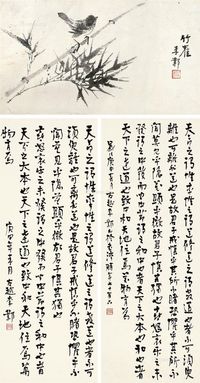 竹雀
天命之謂性率性之謂道修道之謂教道也者不可須臾
離也可離非道也是故君子戒慎乎其所不睹恐懼乎其所不
聞莫見乎隱莫顯乎微故君子慎其獨也喜怒哀樂之未
發謂之中發而皆中節謂之和中也者天下之大本也和也者
天下之達道也致中和天地位焉萬物育焉
天命之謂性率性之謂道修道之謂教道也者不可
須臾離也可離非道也是故君子戒慎乎其所不睹恐懼乎其所不
聞莫見乎隱莫顯乎微故君子慎其獨也
喜怒哀樂之未發謂之中發而皆中節謂之和中也者
天下之大本也和也者天下之達道也致中和天地位焉萬
物育焉